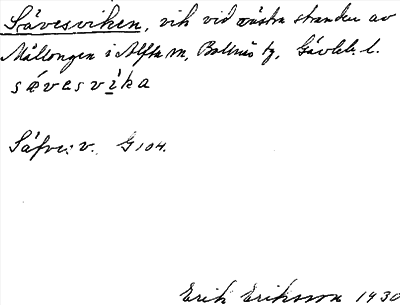 Sävesviken, vik vid västra stranden av
Mållongen i Alfta sn, Bollnäs tg, Gävleb. l.
sævesvika
Säfves v. G 104.
Erik Eriksson 1930